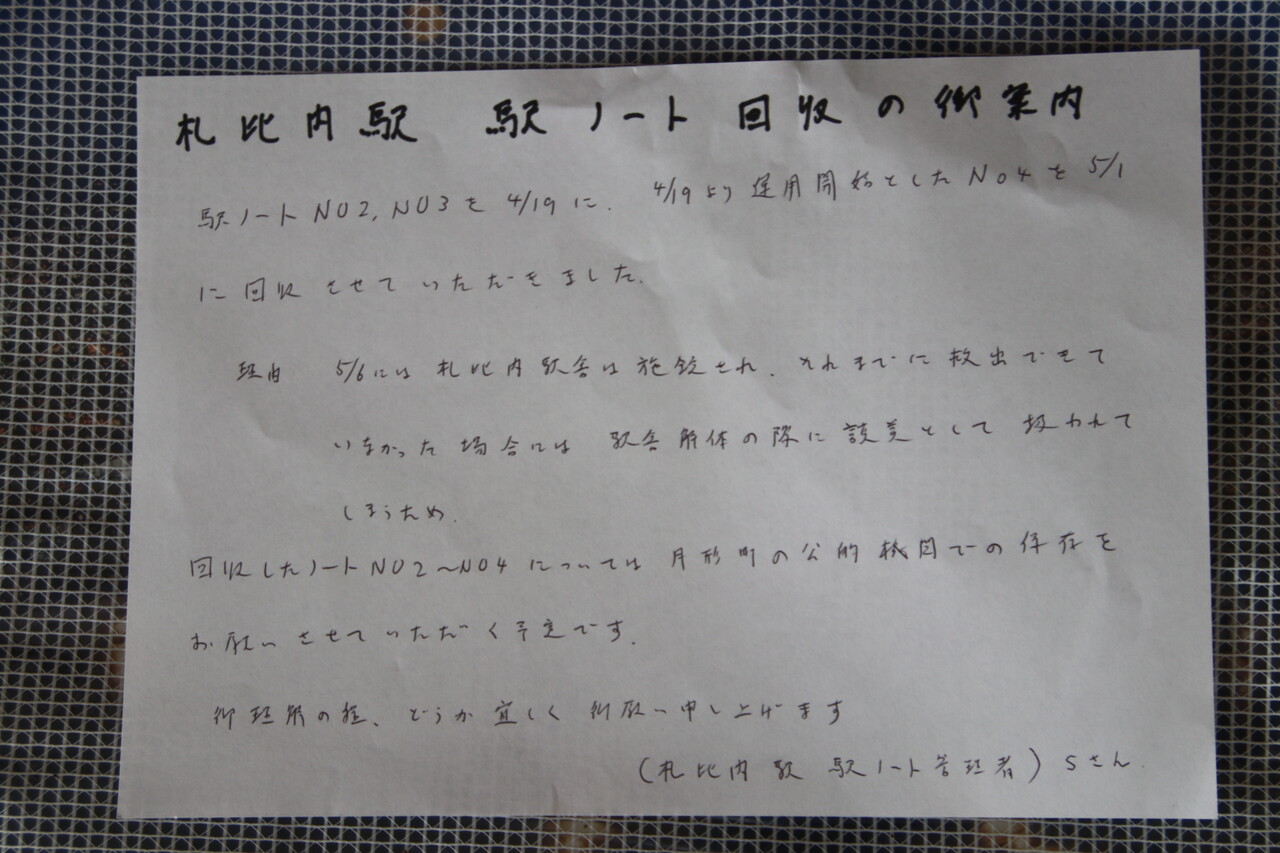 札比内駅 駅ノート回収の御案内
駅ノートNO2,NO3を4/19に、4/19より運用開始としたNO4を5/1
に回収させていただきました。
理由 5/6には札比内駅舎は施錠され、それまでに救出できて
いなかった場合には駅舎解体の際に設美として扱われて
しまうため。
回収したノートNO2〜NO4については月形町の公的機関での保存を
お願いさせていただく予定です。
御理解の程、どうか宜しく御願い申し上げます
(札比内駅 駅ノート管理者) Sさん